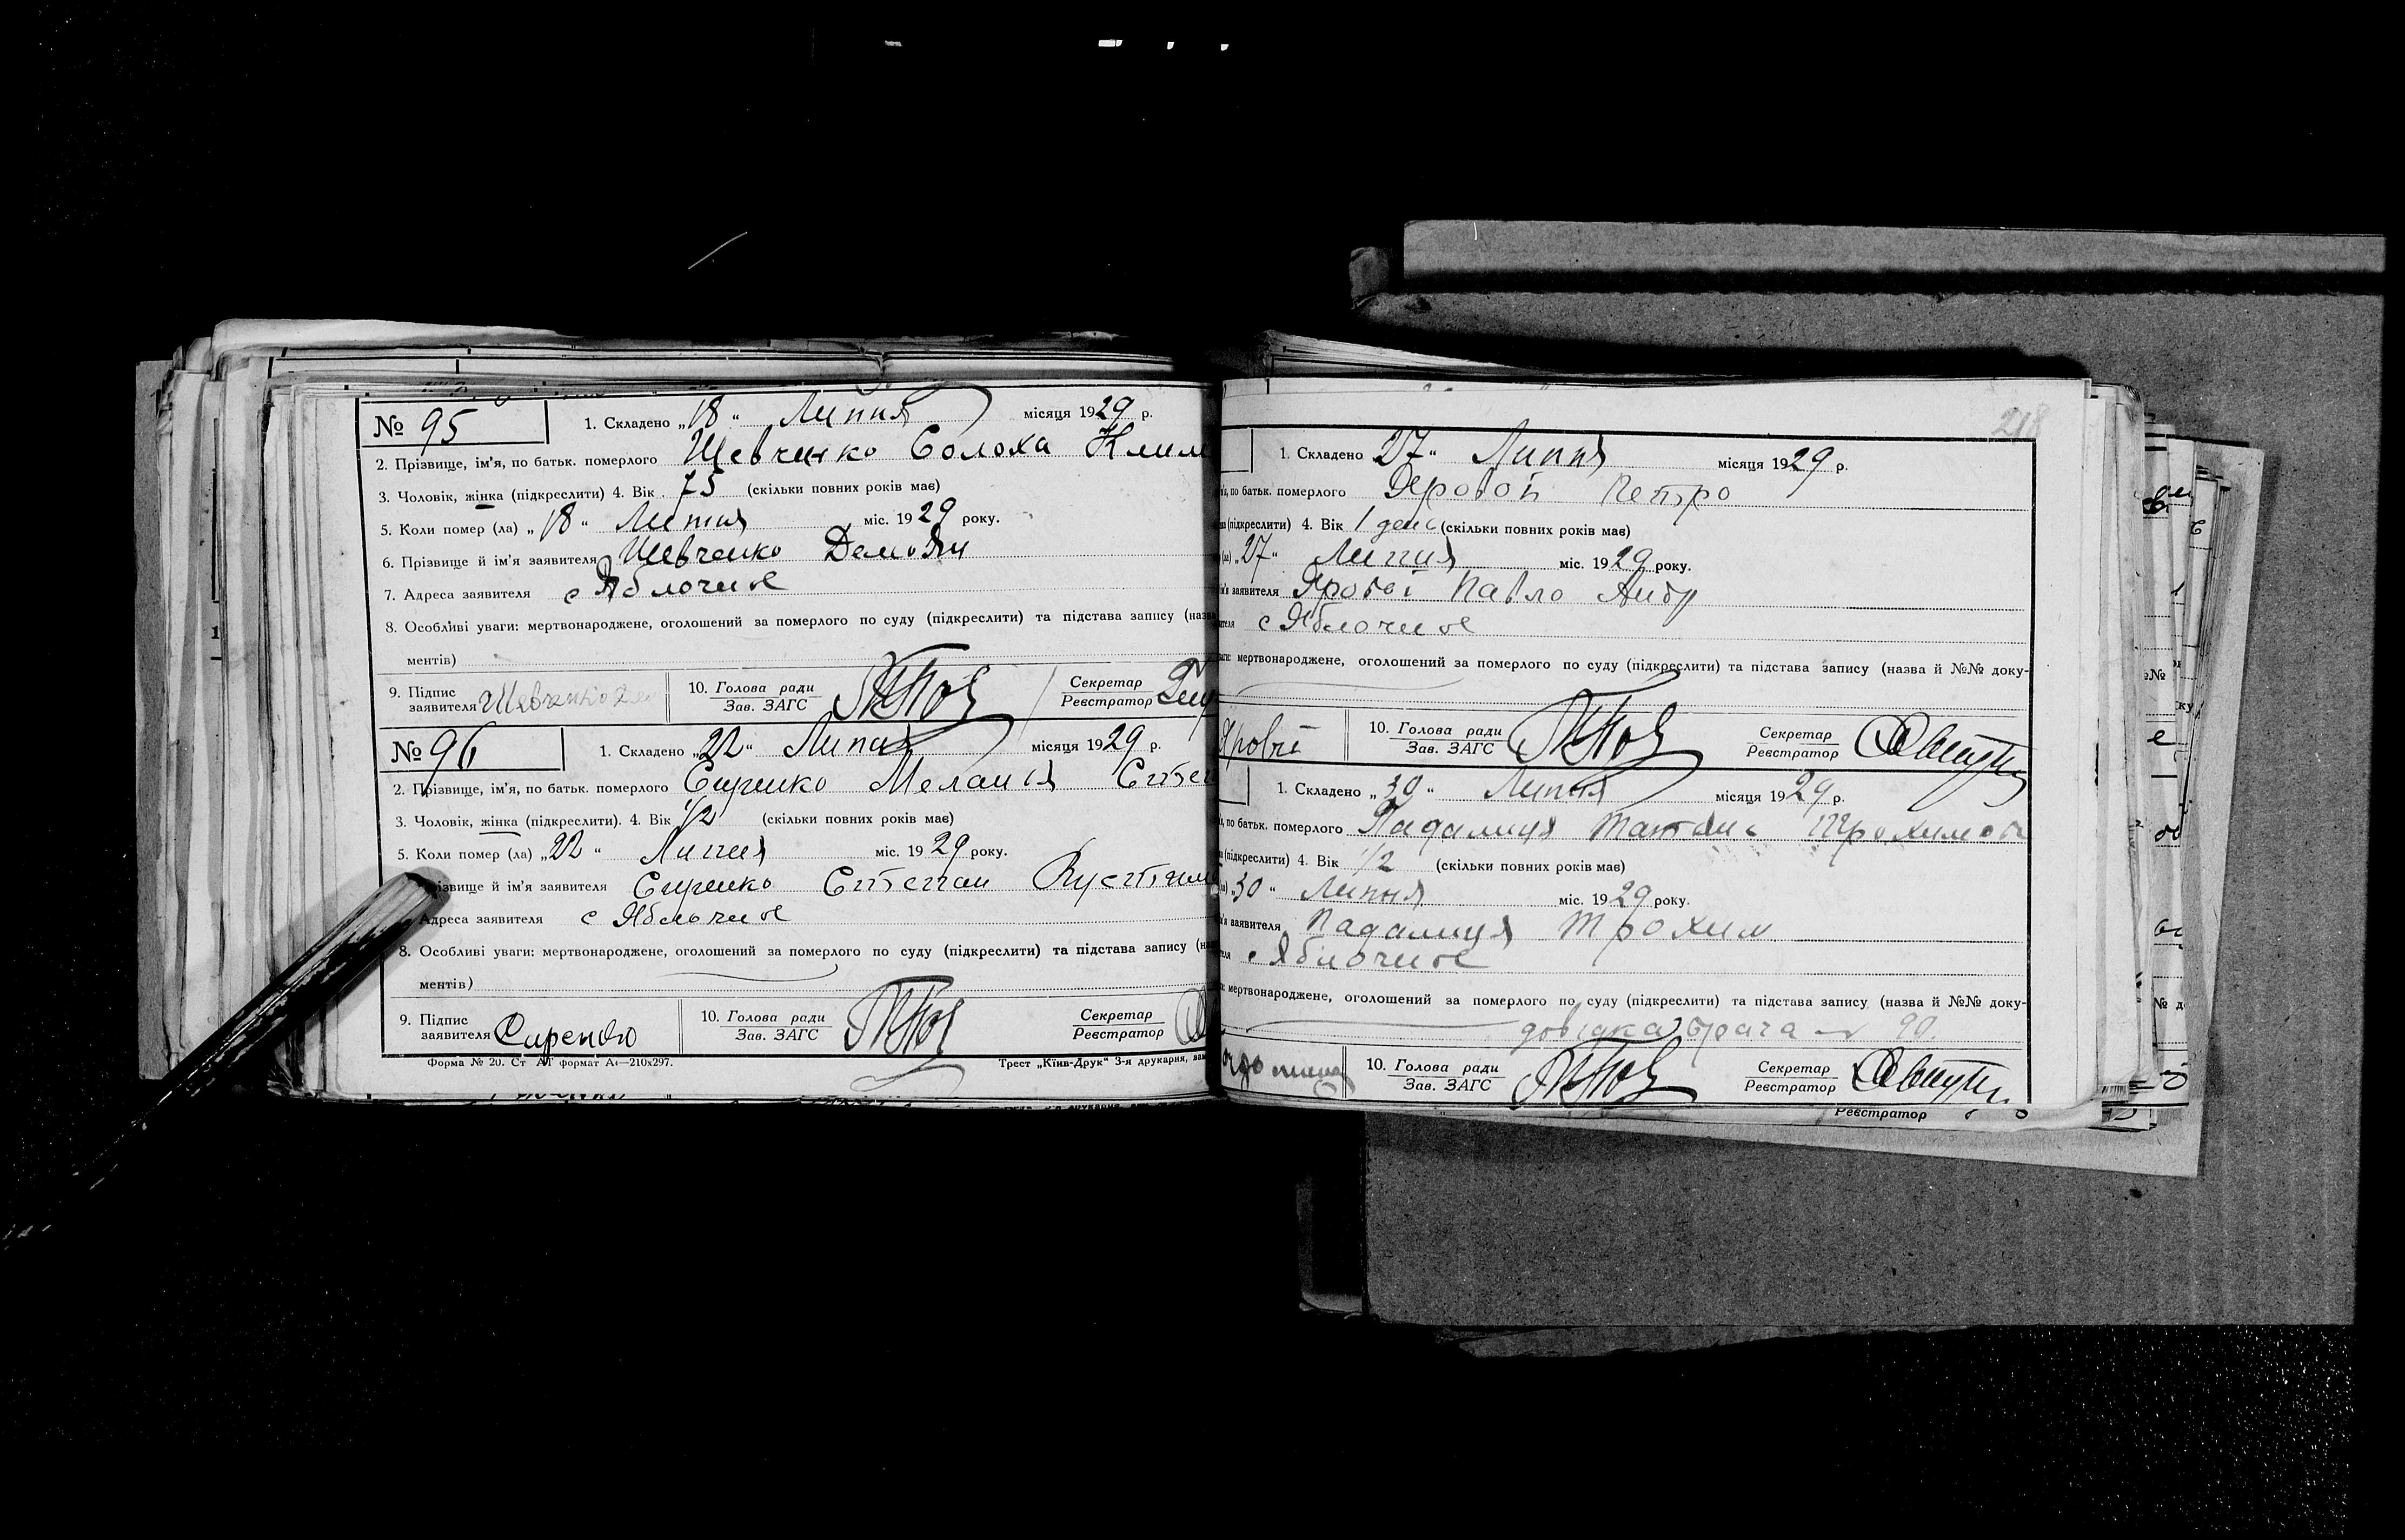 № 95 1. Складено „18“ Липня місяця 1929 р.
2. Прізвище, ім'я, по батьк. померлого Шевченко Солоха Клим
3. Чоловік, жінка (підкреслити) 4. Вік 75 (скільки повних років має)
5. Коли помер (ла) „18“ Липня міс. 1929 року.
6. Прізвище й ім'я заявителя Шевченко Демьян
7. Адреса заявителя с Яблочное
8. Особливі уваги: мертвонароджене, оголошений за померлого по суду (підкреслити) та підстава запису (назва
ментів)
9. Підпис заявителя Шевченко Де 10. Голова ради Зав. ЗАГС Секретар Реєстратор
№ 96 1. Складено „22“ Липня місяця 1929 р.
2. Прізвище, ім'я, по батьк. померлого Сиренко Мелания Степ
3. Чоловік, жінка (підкреслити). 4. Вік 1/2 (скільки повних років має)
5. Коли помер (ла) „22“ Липня міс. 1929 року.
різвище й ім'я заявителя Сиренко Степан
Адреса заявителя с Яблочное
8. Особливі уваги: мертвонароджене, оголошений за померлого по суду (підкреслити) та підстава запису (на
ментів)
9. Підпис заявителя Сиренко 10. Голова ради Зав. ЗАГС Секретар Реєстратор
Форма № 20. Ст АГ формат А4—210х297. Трест „Київ-Друк“ 3-я друкарня, зам
218
1. Складено 27“ Липня місяця 1929 р.
по батьк. померлого Яровой Петро
(підкреслити) 4. Вік 1 день (скільки повних років має)
„27“ Липня міс. 1929 року.
заявителя Яровой Павло Андр
с Яблочное
мертвонароджене, оголошений за померлого по суду (підкреслити) та підстава запису (назва й №№ доку-
Яровы 10. Голова ради Зав. ЗАГС Секретар Реєстратор
1. Складено „30“ Липня місяця 1929 р.
по батьк. померлого Падалиця Татяна Трохимов
(підкреслити) 4. Вік 1/2 (скільки повних років має)
„30“ Липня міс. 1929 року.
заявителя Падалиця Трохим
с Яблочное
мертвонароджене, оголошений за померлого по суду (підкреслити) та підстава запису (назва й №№ доку-
довідка врача 90.
10. Голова ради Зав. ЗАГС Секретар Реєстратор
Реєстратор